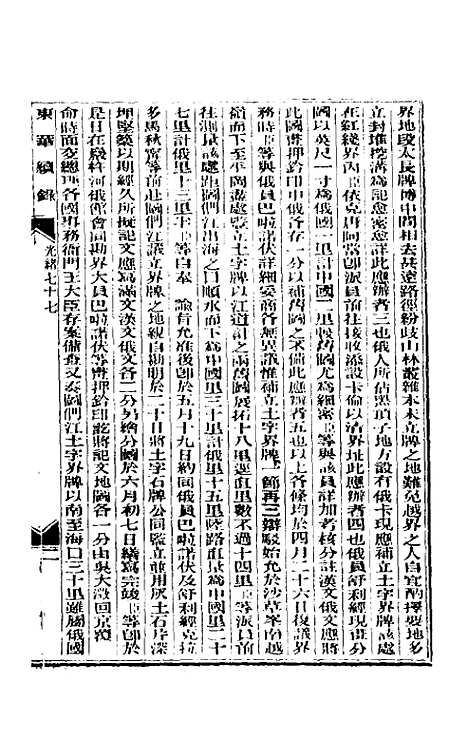 界地段太長牌博中間相去甚遠路徑紛歧山林叢雜本未立牌之地難免越界之人自宜酌擇要地多
立封堆挖溝爲記愈密愈詳此應辦者三也俄人所佔黑頂子地方設有俄卡現應補立土字界牌該處
在紅綫界內臣依克唐阿當卽派員前往接收添設卡倫以清界址此應辦者四也俄員舒利經現畫分
國以英尺一寸爲俄國一里計中國二里較舊圖尤爲細密臣等與該員詳加考核分註漢文俄文應將
此圖畫押鈐印中俄各存一分以補舊圖之未備此應辦者五也以上各條均於四月二十六日復議界
務時臣等與俄員巴啦諾伏詳細妥商各無異議惟補立土字界牌一節再三辯駁始允於沙草峯南越
嶺而下至平岡盡處立牌以江道計之兩舊圖展拓十八里逕直里數不過十四里臣等派員前
往測量該處距圖們江出海之口順水而下爲中國里三十里計俄里十五里陸路直量爲中國里二十
七里計俄里十三里半臣等自奉　諭旨允准後卽於五月十九日約同俄員巴啦諾伏及舒利經克拉
多馬秋甯等前赴圖們江議立界牌之地親自勘明於二十日將土字石牌公同監立並用灰土石片深
埋堅築以期經久所擬記文應寫滿文漢文俄文各二分另繪分圖於六月初七日繕寫完竣臣等卽於
是日在巖杵河俄館會同勘界大員巴啦諾伏等畫押鈐印訖將記文地圖各一分由吳大澂回京覆
命時面交總理各國事務衙門王大臣存案備查又奏圖們江土字界牌以南至海口三十里雖屬俄國
東華續錄
光緒七十七
二